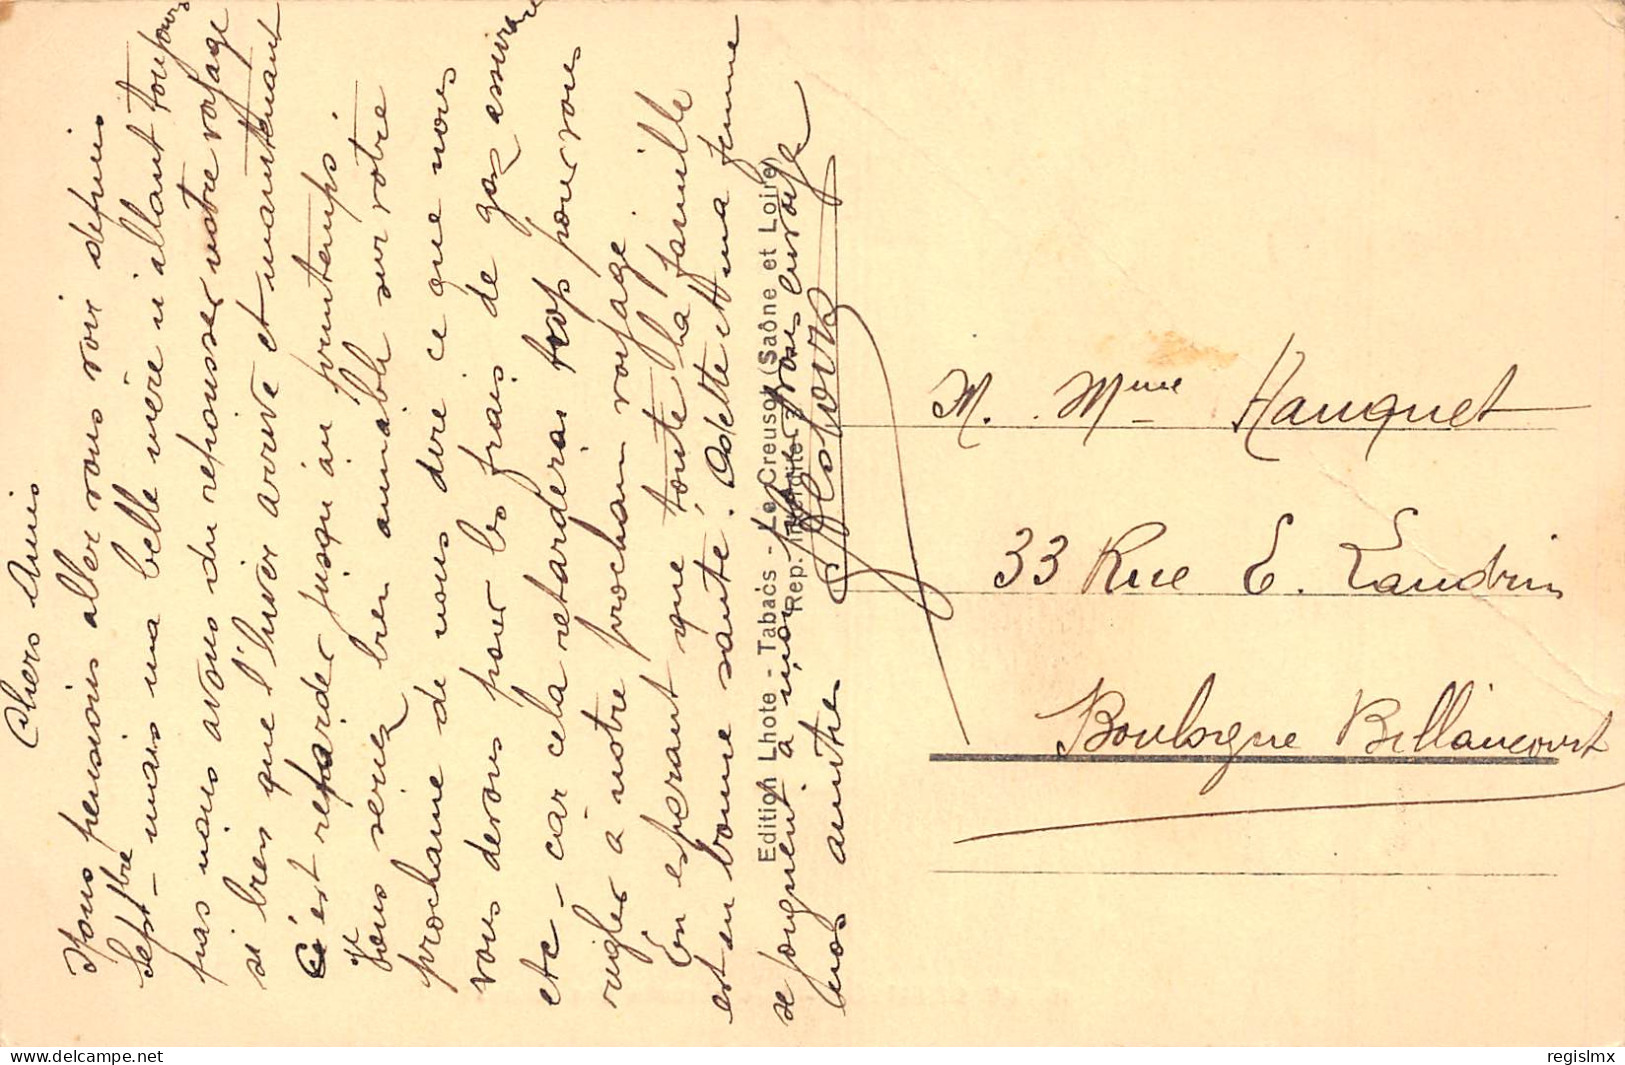 Chers Amis
Nous pensions aller vous voir depuis
Septbre – mais ma belle mère n'allant toujours
pas nous avons du repousser notre voyage
si bien que l'hiver arrive et maintenant
C'est retarder jusqu'au printemps.
Vous seriez bien aimable sur votre
prochaine de nous dire ce que nous
vous devons pour les frais de gaz assurance
etc – car cela retardera trop pour vous
regler à notre prochain voyage
En esperant que toute la famille
est en bonne santé. Odette et ma femme
se joignent à moi pour vous envoyer
nos amitiés
Edition Lhote - Tabacs - Le Creusot (Saône et Loire)
Rep. Interdite
M. Mme Hauquet
33 Rue E. Landrin
Boulogne Billancourt
delcampe.net
regislmx